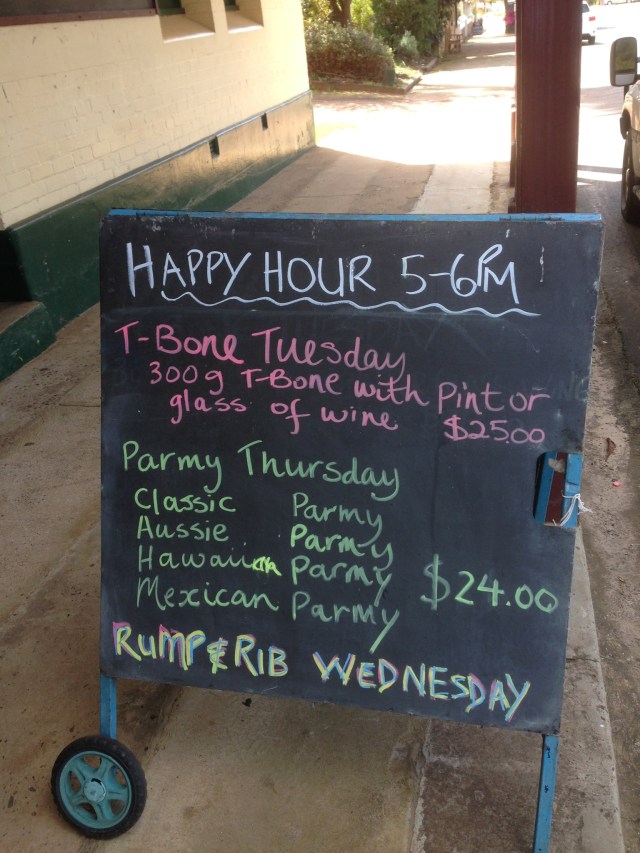 HAPPY HOUR 5-6PM
T-Bone Tuesday
300g T-Bone with Pint or
glass of wine $25.00
Parmy Thursday
Classic Parmy
Aussie Parmy
Hawaiian Parmy $24.00
Mexican Parmy
RUMP & RIB WEDNESDAY